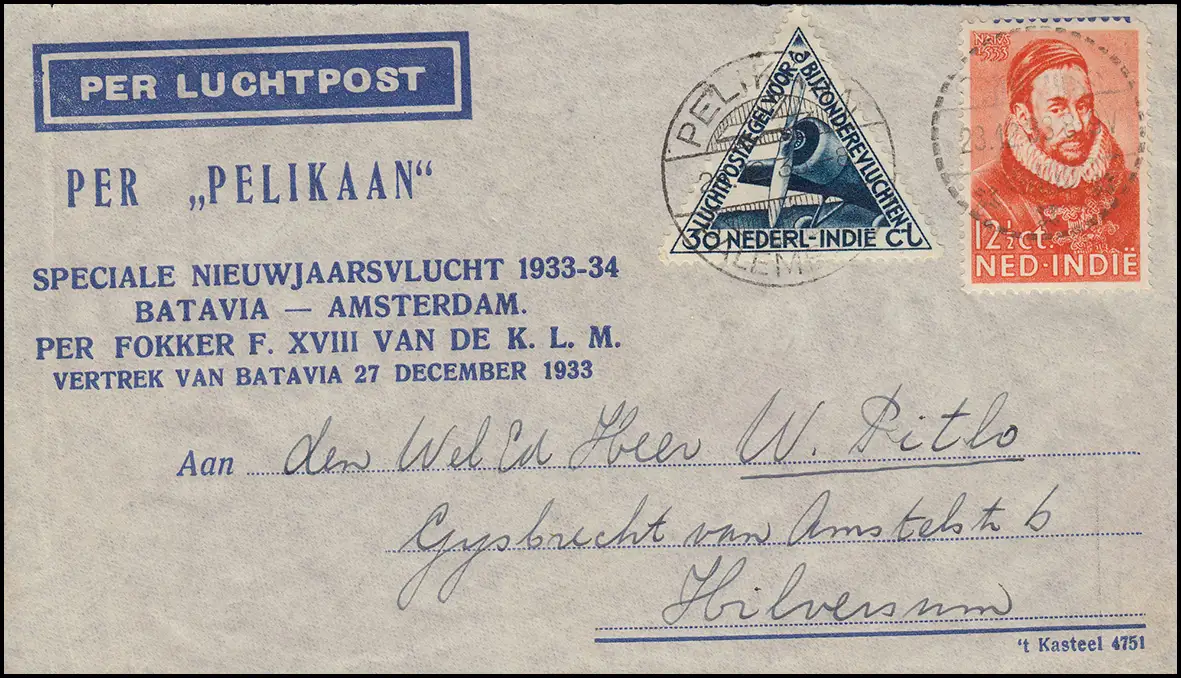 PER LUCHTPOST
PER „PELIKAAN“
SPECIALE NIEUWJAARSVLUCHT 1933-34
BATAVIA — AMSTERDAM.
PER FOKKER F. XVIII VAN DE K. L. M.
VERTREK VAN BATAVIA 27 DECEMBER 1933
LUCHTPOSTZEGEL VOOR
BIJZONDERE VLUCHTEN
30 NEDERL-INDIË CT
NATUS
1533
12½ct.
NED·INDIË
Aan den Wel Ed Heer W. Pitlo
Gysbrecht van Amstelstr 6
Hilversum
't Kasteel 4751